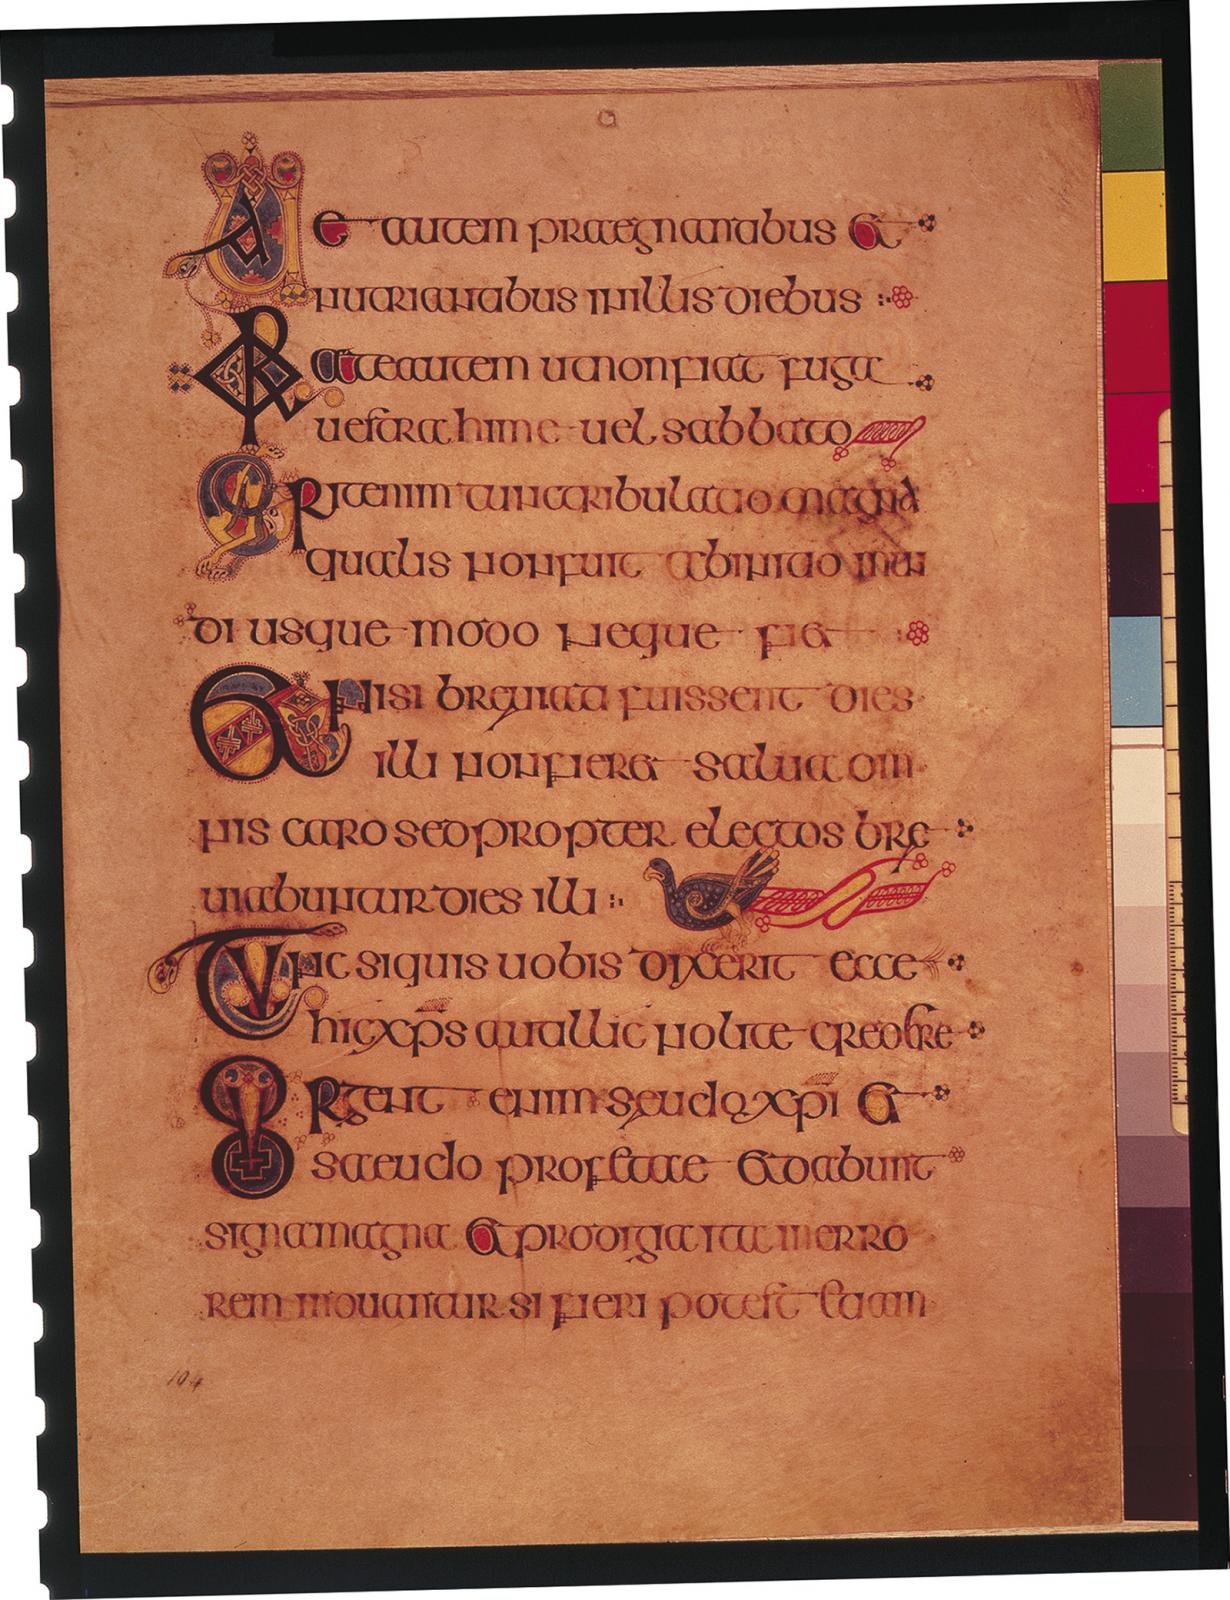 Uae autem praegnantabus et
nutriantabus inillis diebus
Orate autem ut non fiat fuga
uestra hime uel sabbato
Erit enim tunc tribulatio magna
qualis non fuit ab initio mun
di usque modo neque fiet
Et nisi breuiata fuissent dies
illi non fieret salua om
nis caro sed propter electos bre
uiabuntur dies illi
Tunc siquis uobis dixerit ecce
hic xps aut allic nolite credere
Surgent enim seudo xpi et
saeudo profetae et dabunt
signa magna et prodigia ita in erro
rem moueantur si fieri potest etiam
104